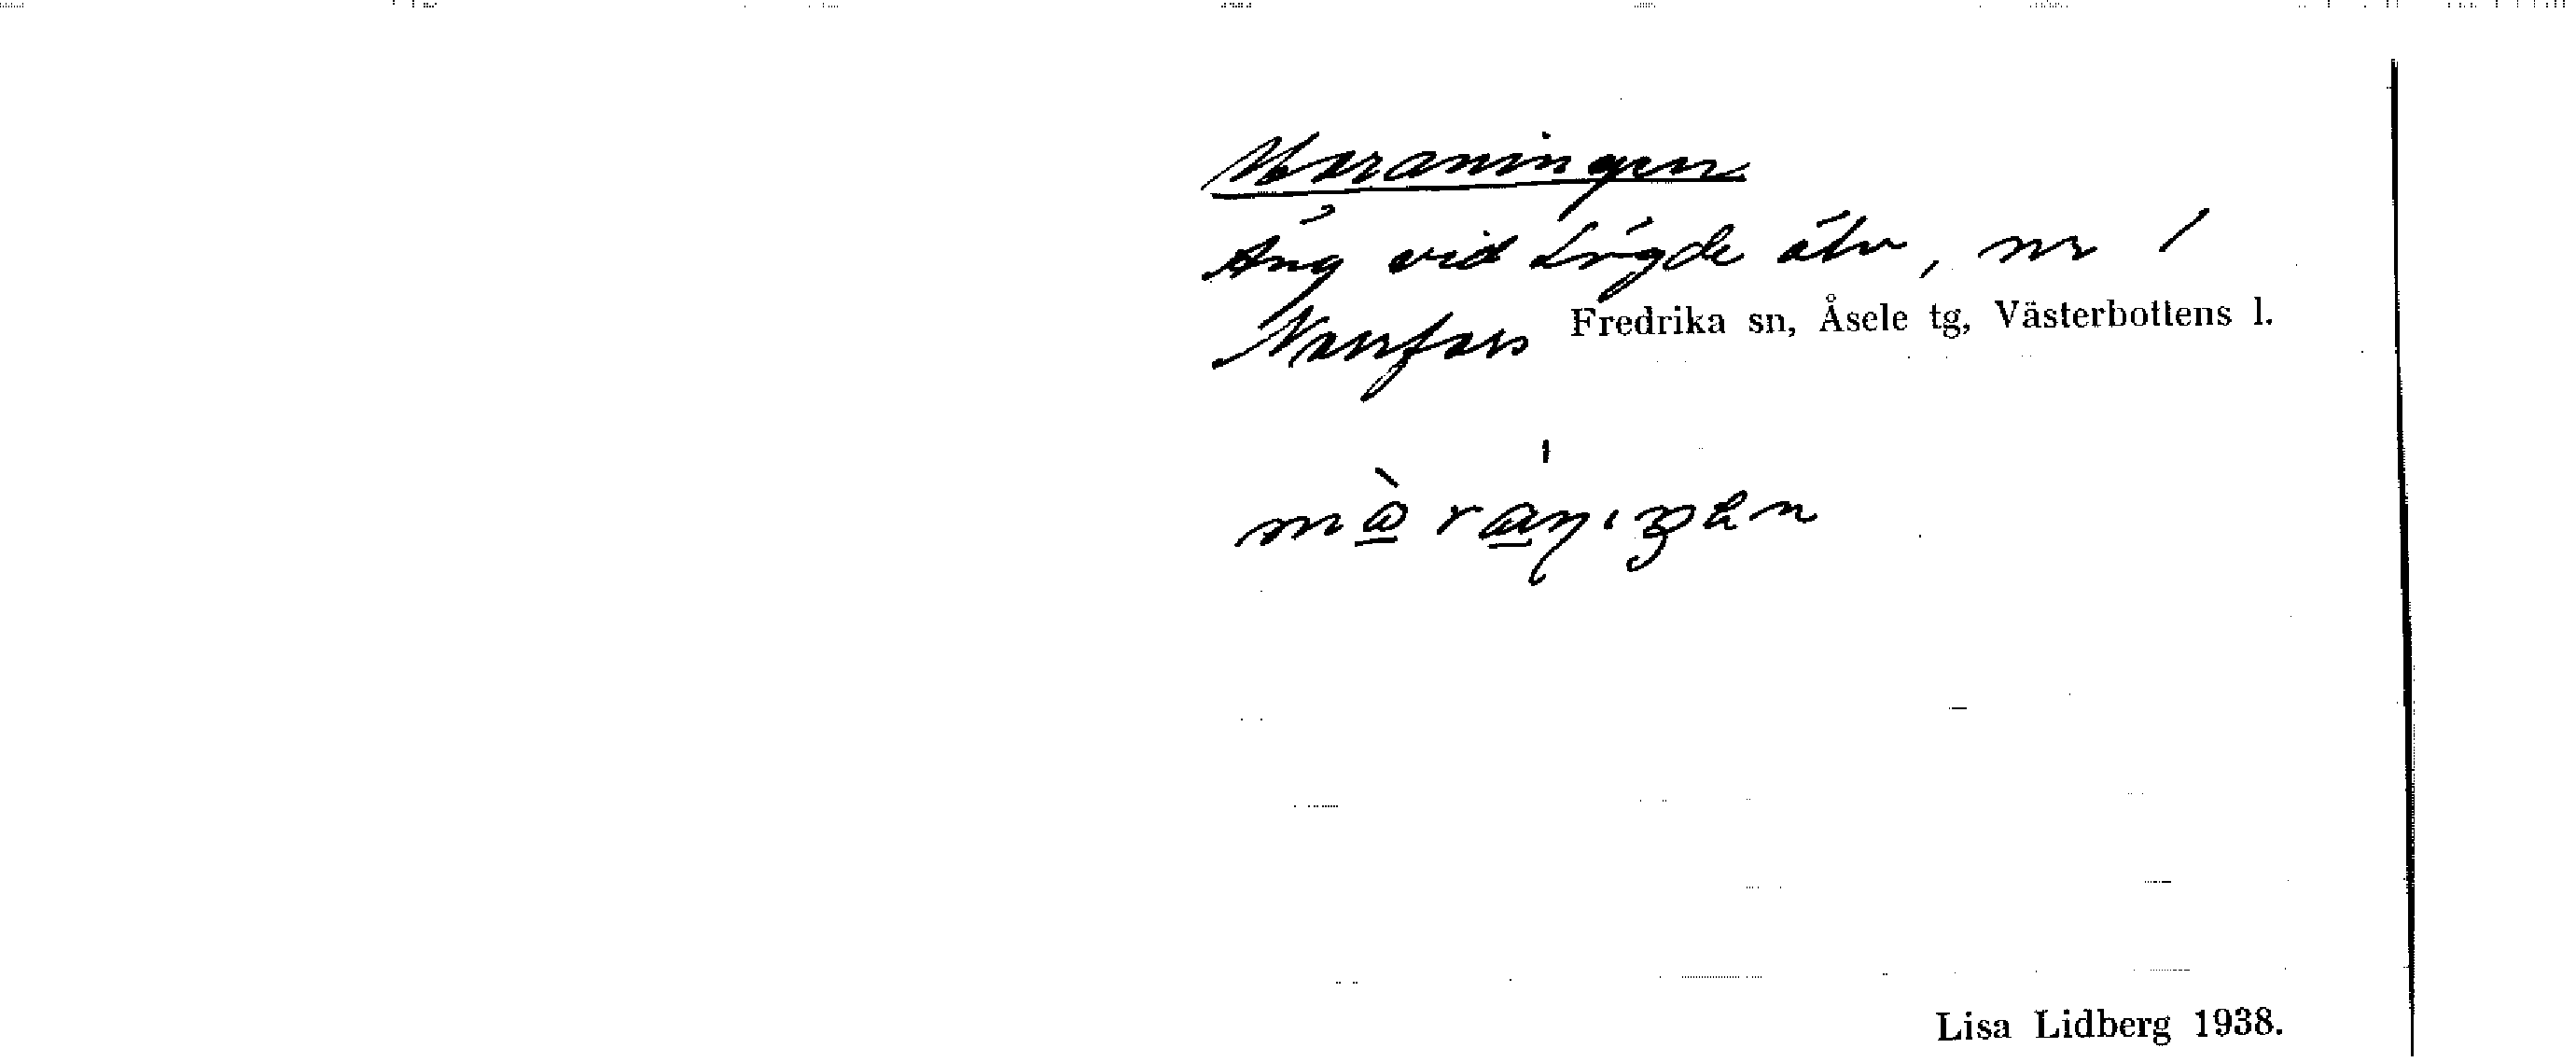 Moraningen
Äng vid Lögde älv, nr 1
Norrfors Fredrika sn, Åsele tg, Västerbottens l.
Lisa Lidberg 1938.